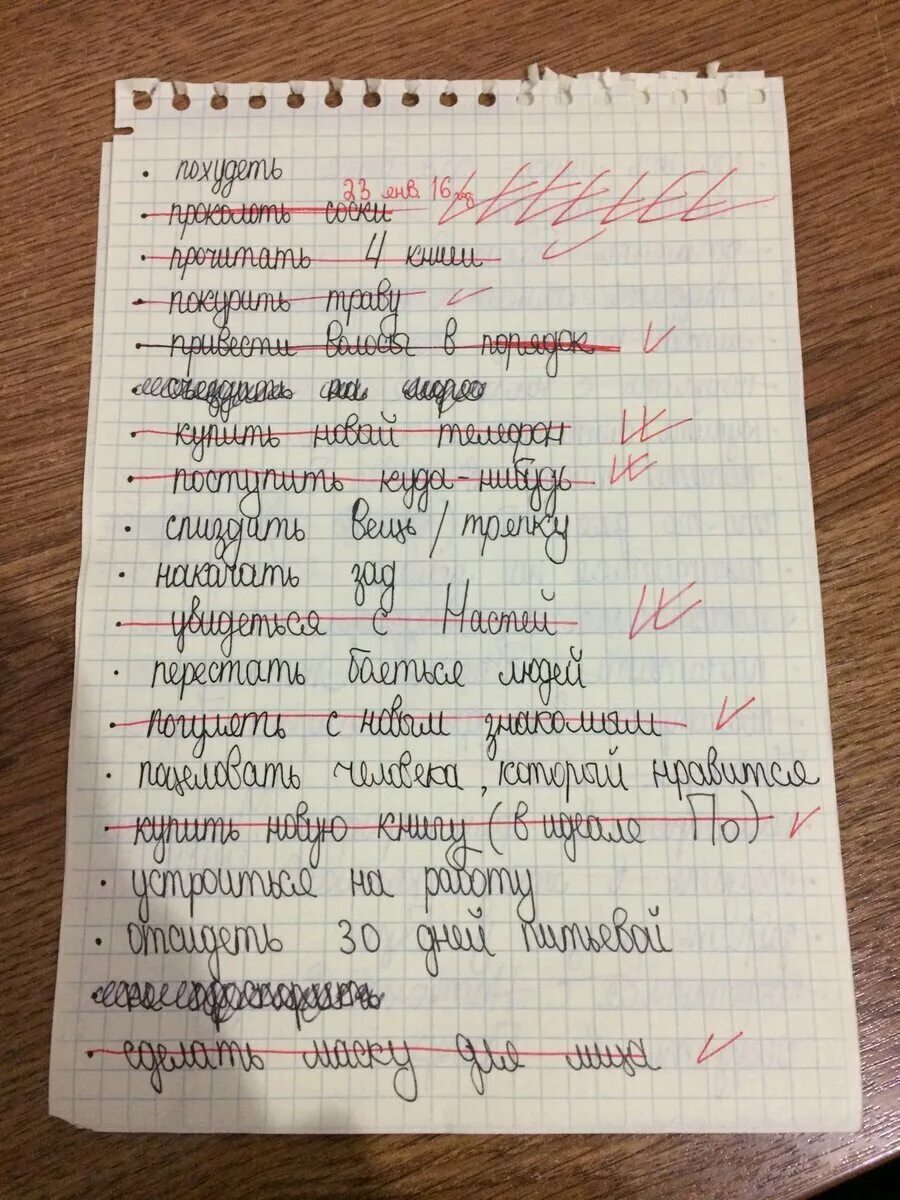 • похудеть
23 янв. 16 год
• проколоть соски
• прочитать 4 книги
• покурить траву
• привести волосы в порядок
на море
• купить новай телефон
• поступить куда-нибудь
• спиздать вещь / тряпку
• накачать зад
• увидеться с Настей
• перестать баеться людей
• погулять с новым знакомым
• пацеловать человека, который нравится
• купить новую книгу (в идеале По)
• устроиться на работу
• отсидеть 30 дней питьевой
• сделать маску для лица